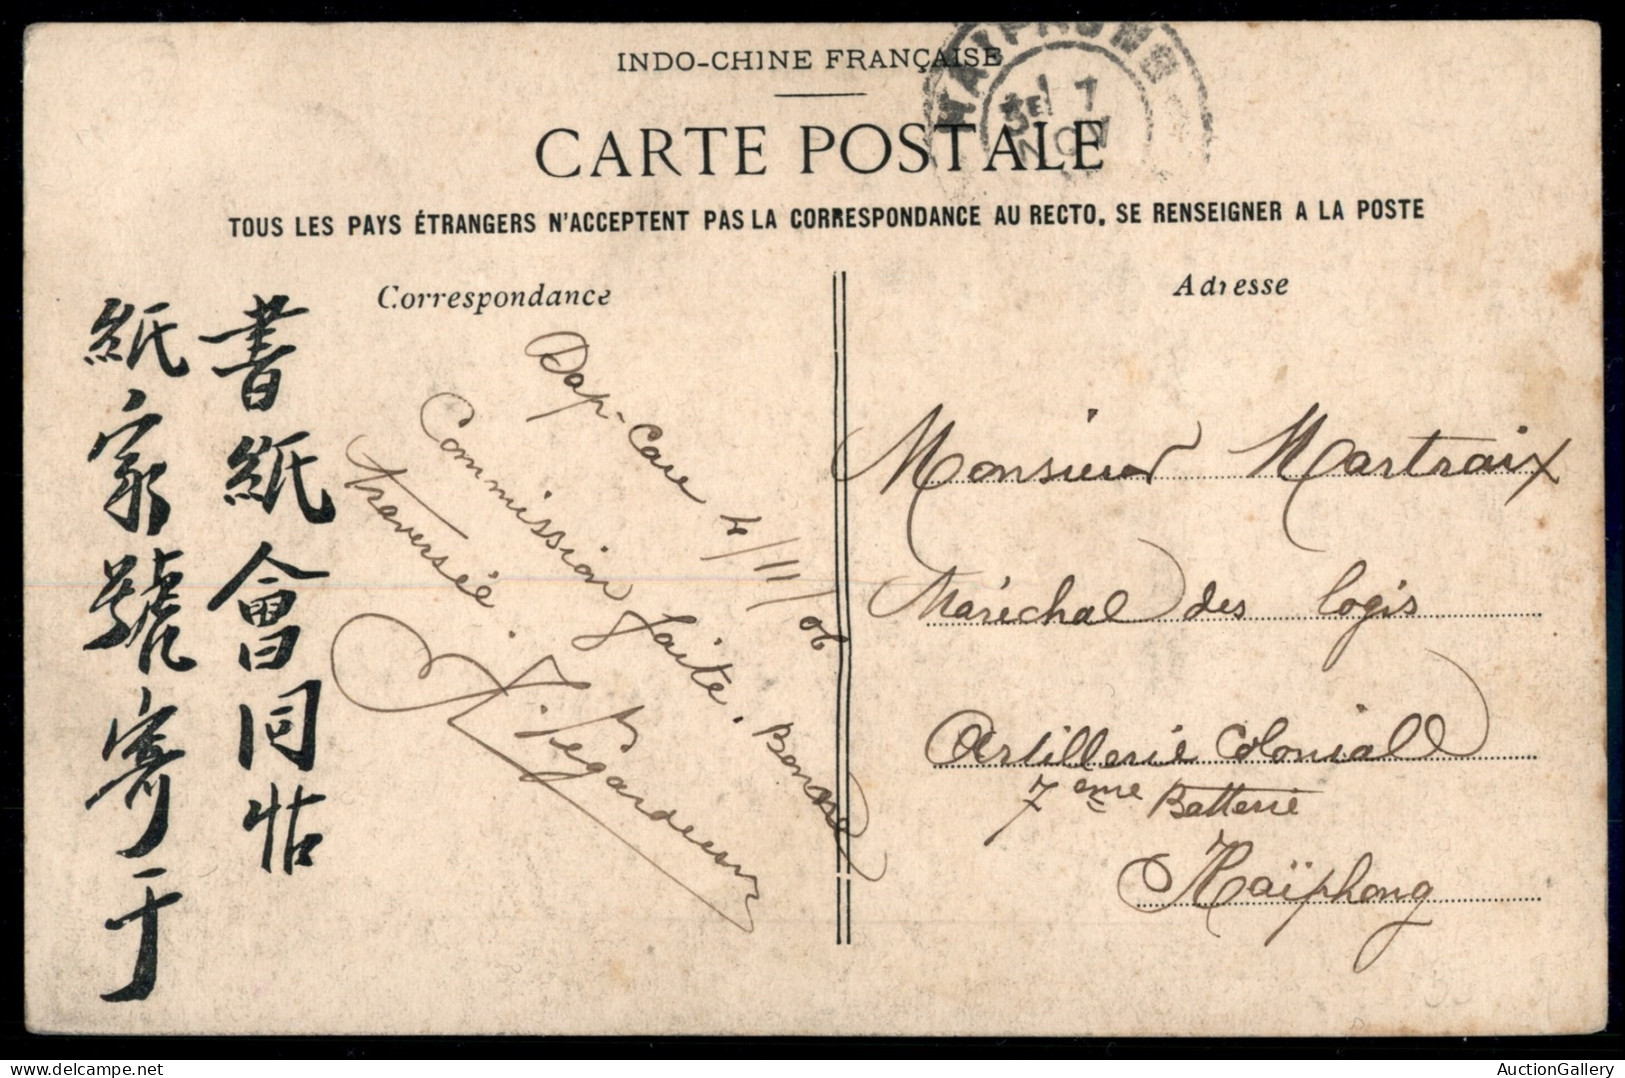 INDO-CHINE FRANÇAISE
CARTE POSTALE
TOUS LES PAYS ÉTRANGERS N'ACCEPTENT PAS LA CORRESPONDANCE AU RECTO. SE RENSEIGNER A LA POSTE
HAIPHONG
7
NOV
Correspondance
Dap-Cau 4/11/06
Commission faite. Bonne
traversée.
書紙會同
紙家號寄于
Adresse
Monsieur Martraix
Maréchal des logis
Artillerie Coloniale
7eme Batterie
Haïphong
AuctionGallery